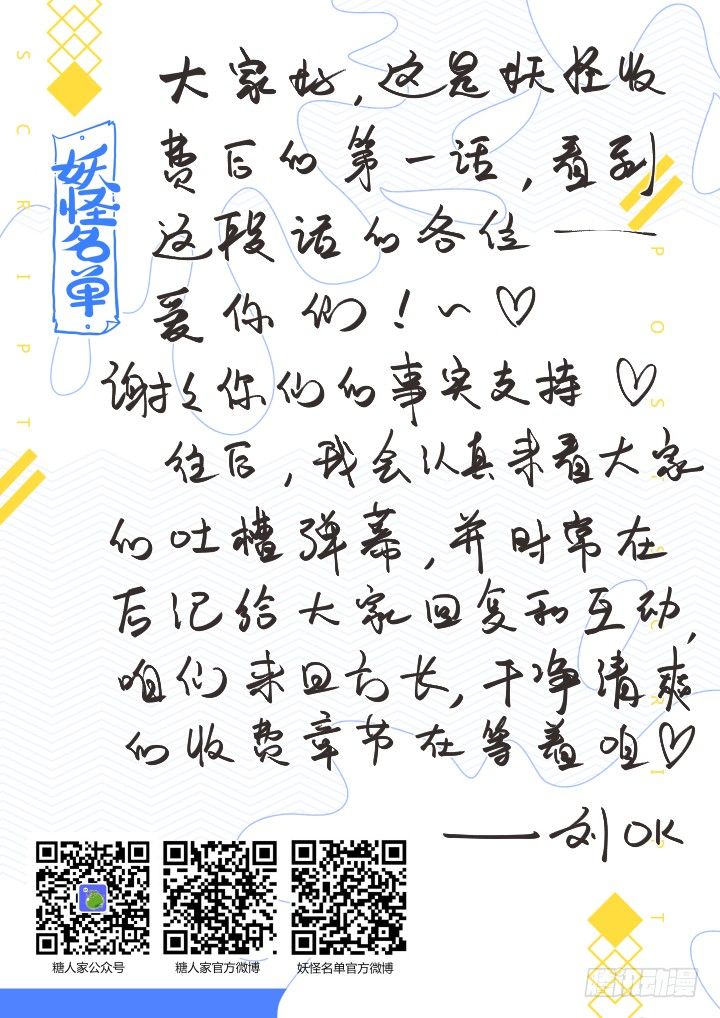 SCRIPT
妖怪名单
大家好，这是妖怪收
费后的第一话，看到
这段话的各位——
爱你们！~♡
谢谢你们的事实支持♡
往后，我会认真来看大家
们吐槽弹幕，并时常在
后记给大家回复和互动，
咱们来日方长，干净清爽
的收费章节在等着咱♡
——刘OK
POSTSCRIPT
糖人家公众号
糖人家官方微博
妖怪名单官方微博
腾讯动漫